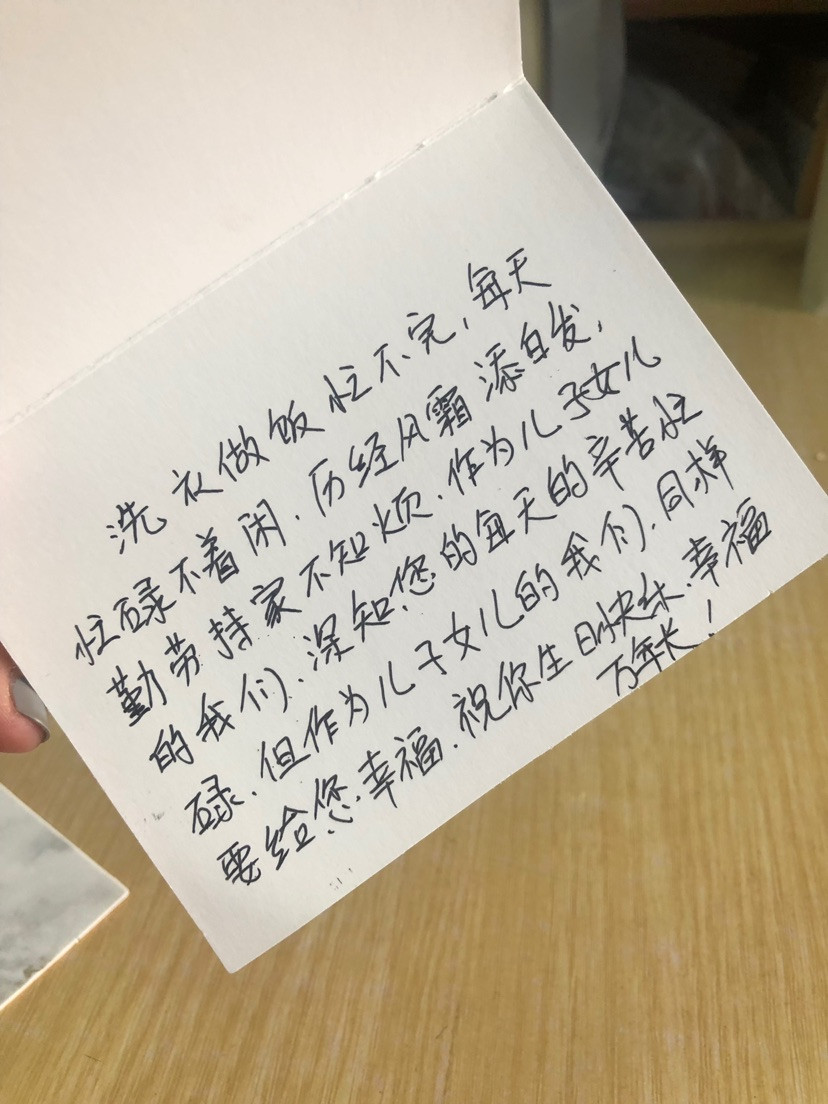 洗衣做饭忙不完，每天
忙碌不着闲.历经风霜添白发，
勤劳持家不知烦.作为儿子女儿
的我们、深知您的每天的辛苦忙
碌.但作为儿子女儿的我们.同样
要给您幸福.祝你生日快乐.幸福
万年长！